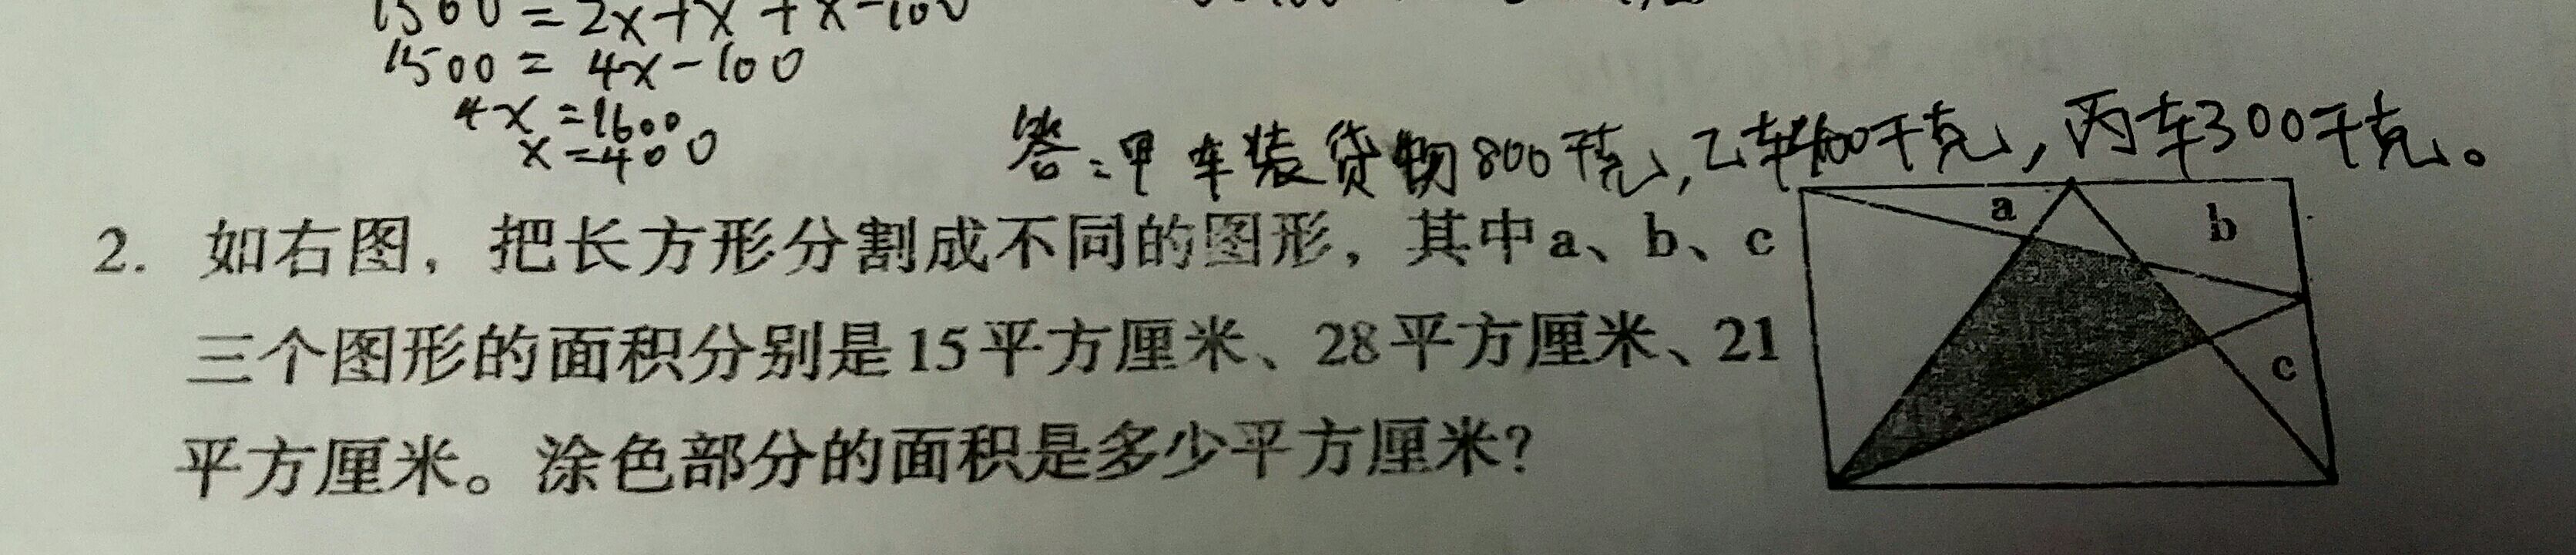 1500=2x+x+x-100
1500=4x-100
4x=1600
x=400
答:甲车装货物800千克,乙车400千克,丙车300千克。
2. 如右图，把长方形分割成不同的图形，其中a、b、c
三个图形的面积分别是15平方厘米、28平方厘米、21
平方厘米。涂色部分的面积是多少平方厘米?
a
b
c